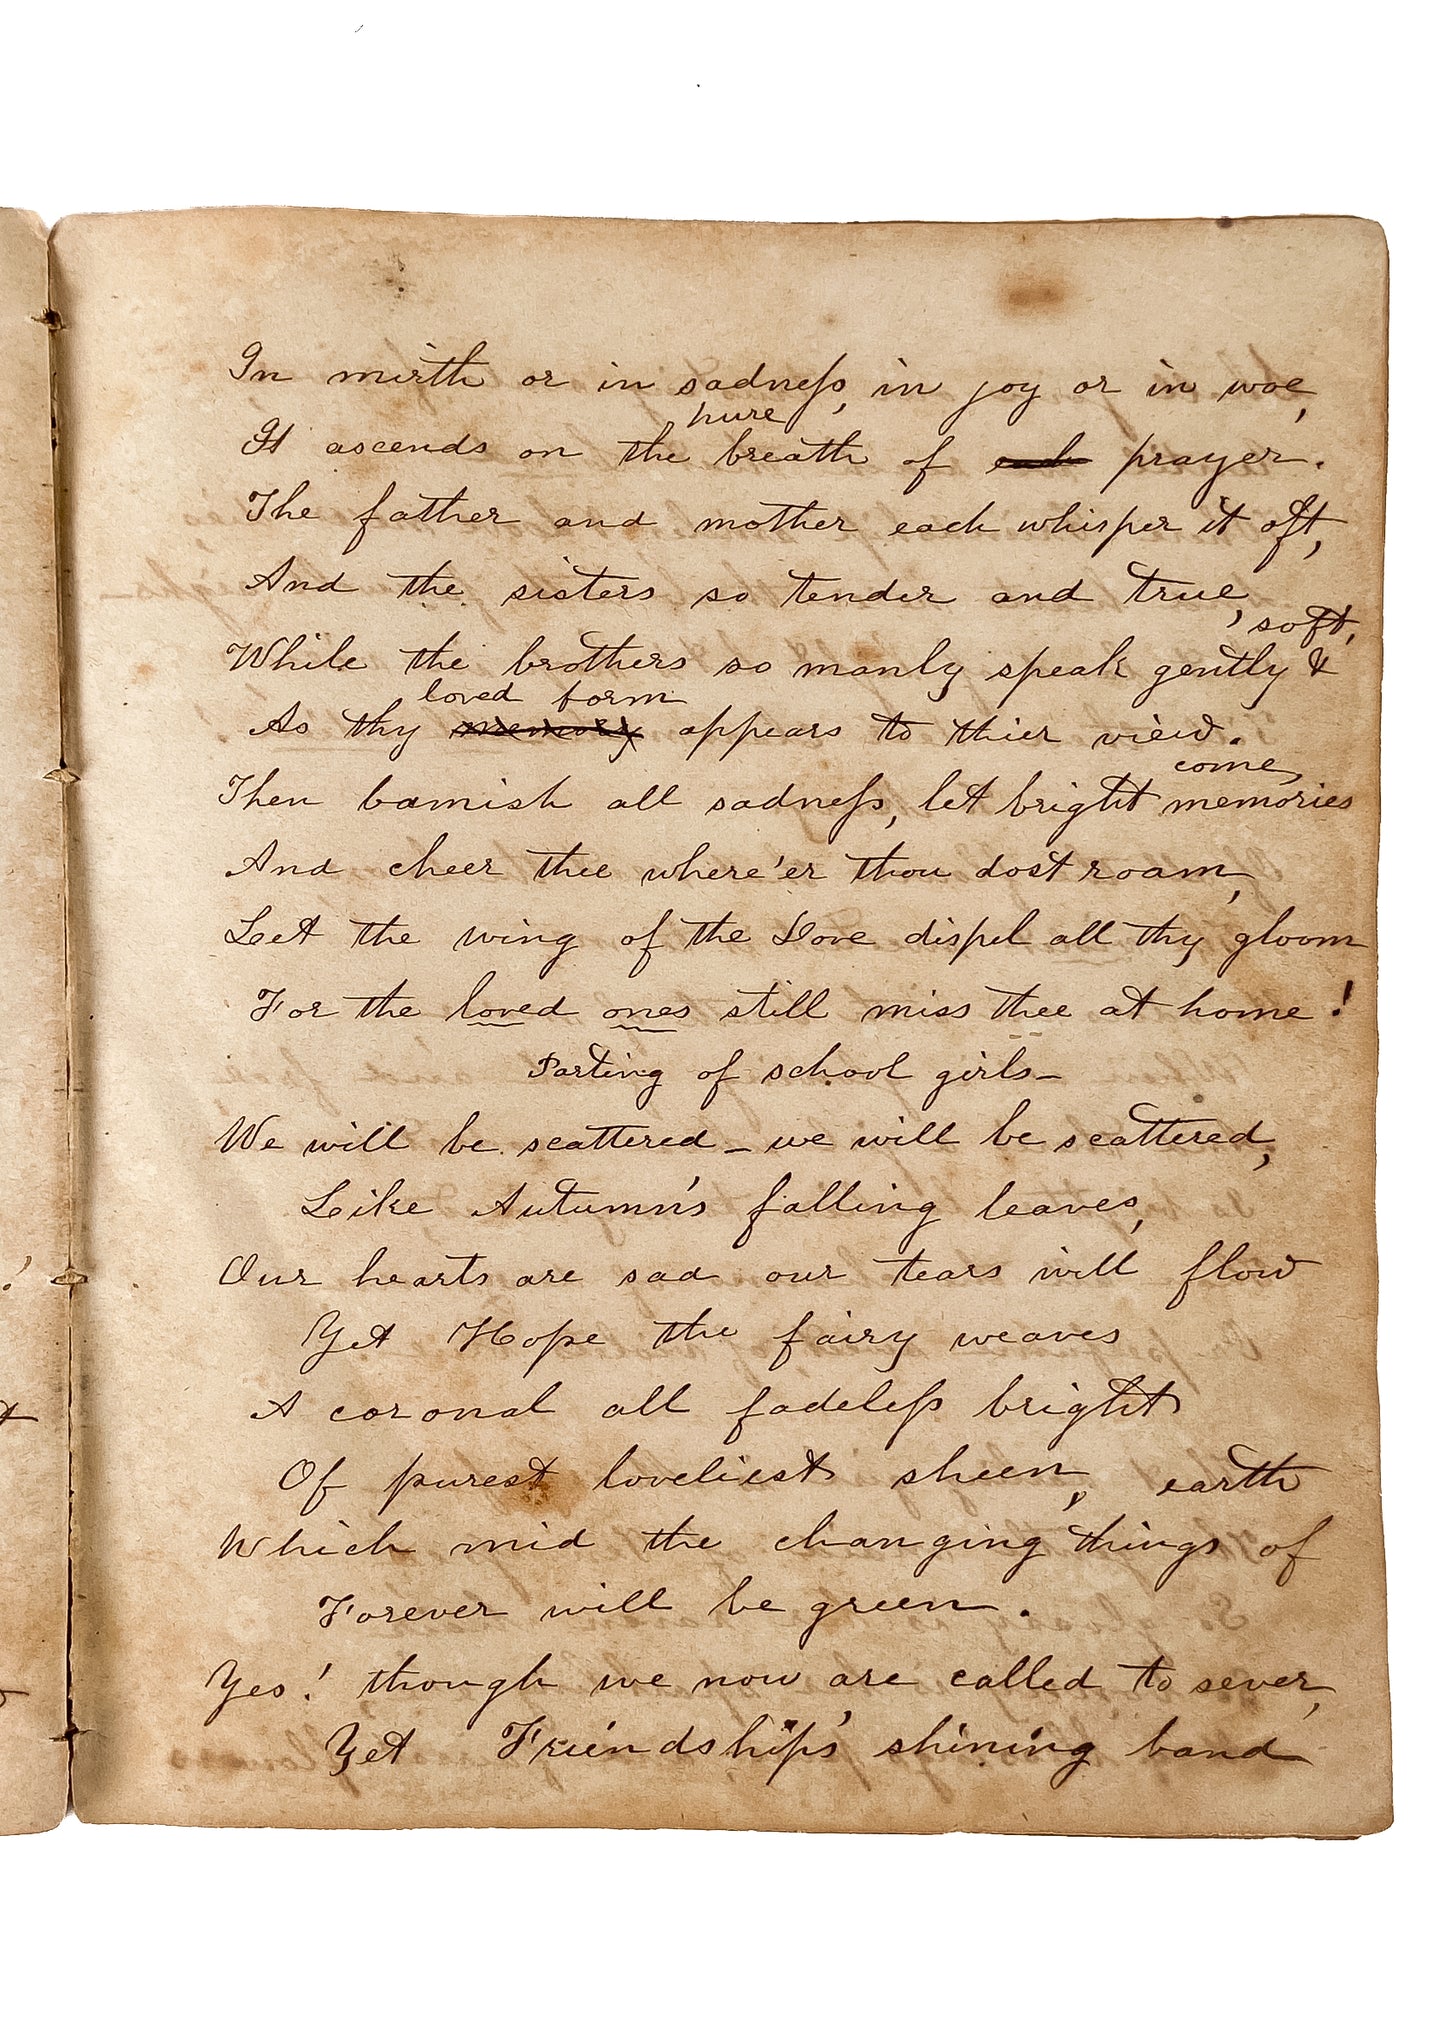 In mirth or in sadneſs, in joy or in woe,
pure
It ascends on the breath of each prayer.
The father and mother each whisper it oft,
And the sisters so tender and true,
soft,
While the brothers so manly speak gently &
loved form
As thy memory appears to thier view.
come,
Then bannish all sadneſs, let bright memories
And cheer thee where'er thou dost roam,
Let the wing of the Dove dispel all thy gloom
For the loved ones still miss thee at home!
Parting of school girls–
We will be scattered – we will be scattered,
Like Autumn's falling leaves,
Our hearts are sad our tears will flow
Yet Hope the fairy weaves
A coronal all fadeleſs bright
Of purest loveliest sheen,
earth
Which mid the changing things of
Forever will be green.
Yes! though we now are called to sever,
Yet Friendship's shining band